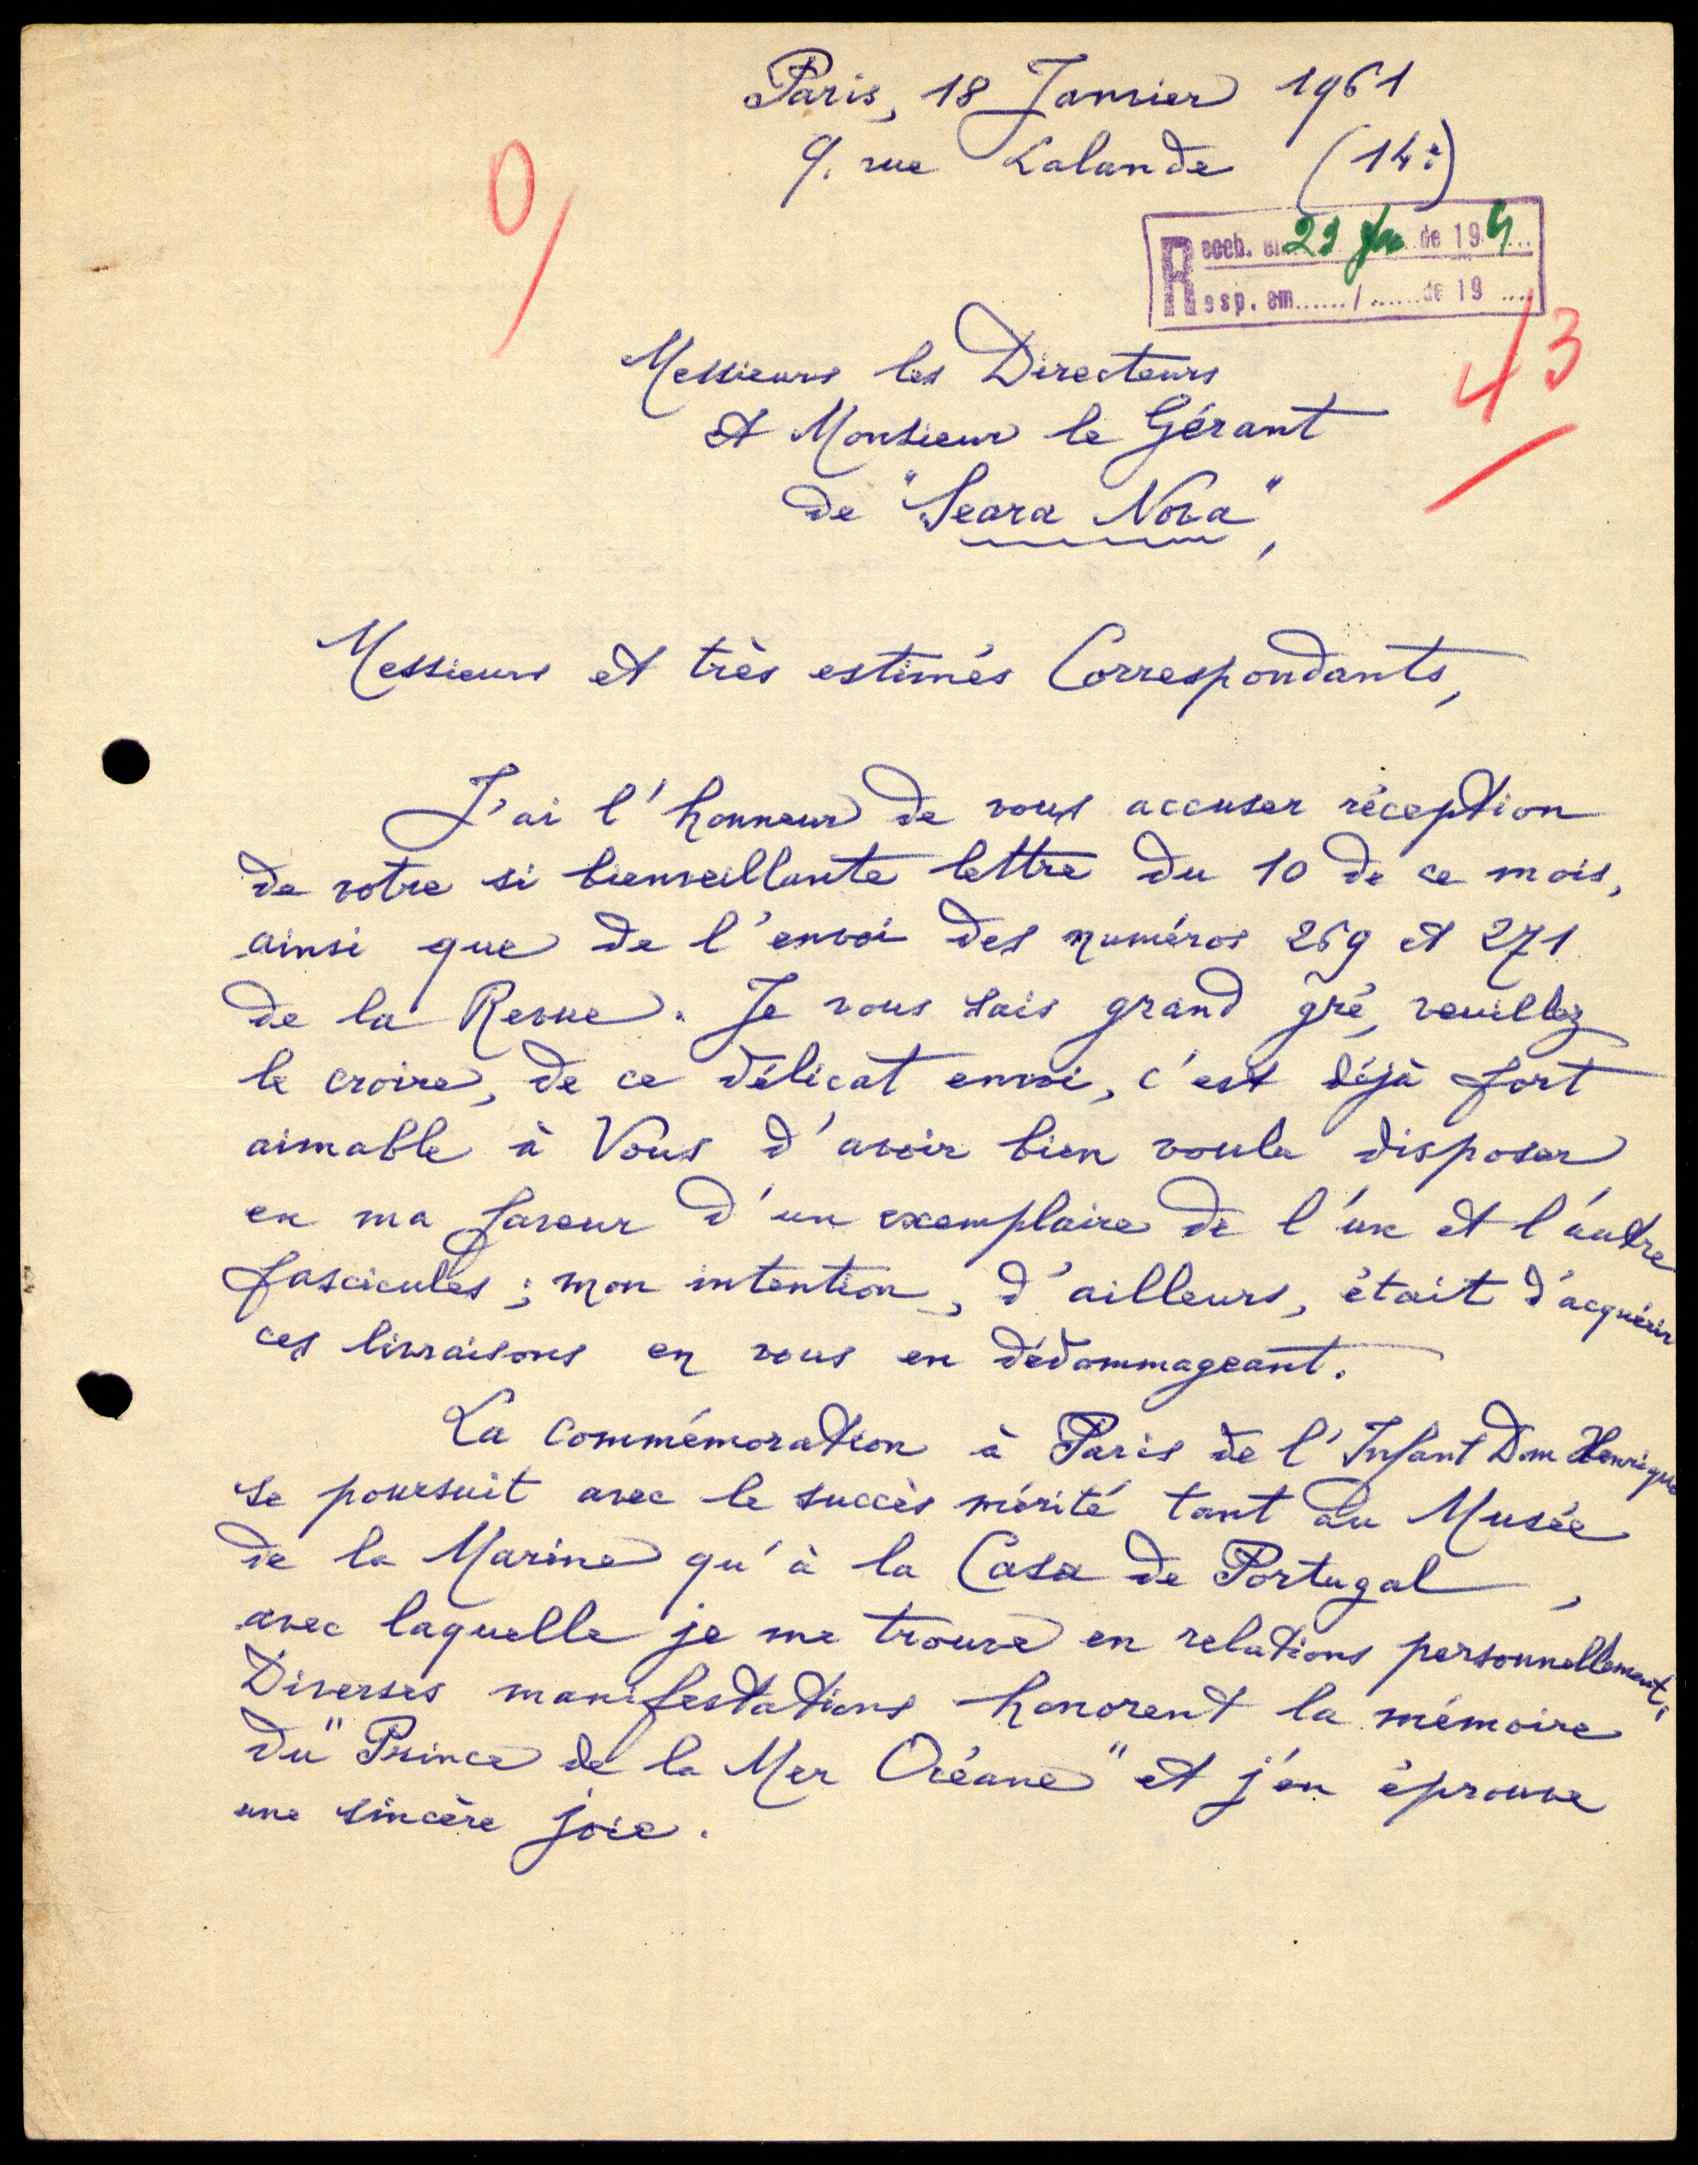 Paris, 18 Janvier 1961
9. rue Lalande (14e)
Receb. em 23 Jan de 196
Resp. em....../......de 19 ....
43
Messieurs les Directeurs
et Monsieur le Gérant
de "Seara Nova",
Messieurs et très estimés Correspondants,
J'ai l'honneur de vous accuser réception
de votre si bienveillante lettre du 10 de ce mois,
ainsi que de l'envoi des numéros 269 et 271
de la Revue. Je vous sais grand gré, veuillez
le croire, de ce délicat envoi, c'est déjà fort
aimable à Vous d'avoir bien voulu disposer
en ma faveur d'un exemplaire de l'un et l'autre
fascicules ; mon intention, d'ailleurs, était d'acquérir
ces livraisons en vous en dédommageant.
La commémoration à Paris de l'Infant Dom Henrique
se poursuit avec le succès mérité tant au Musée
de la Marine qu'à la Casa de Portugal,
avec laquelle je me trouve en relations personnellement.
Diverses manifestations honorent la mémoire
du "Prince de la Mer Océane" et j'en éprouve
une sincère joie.